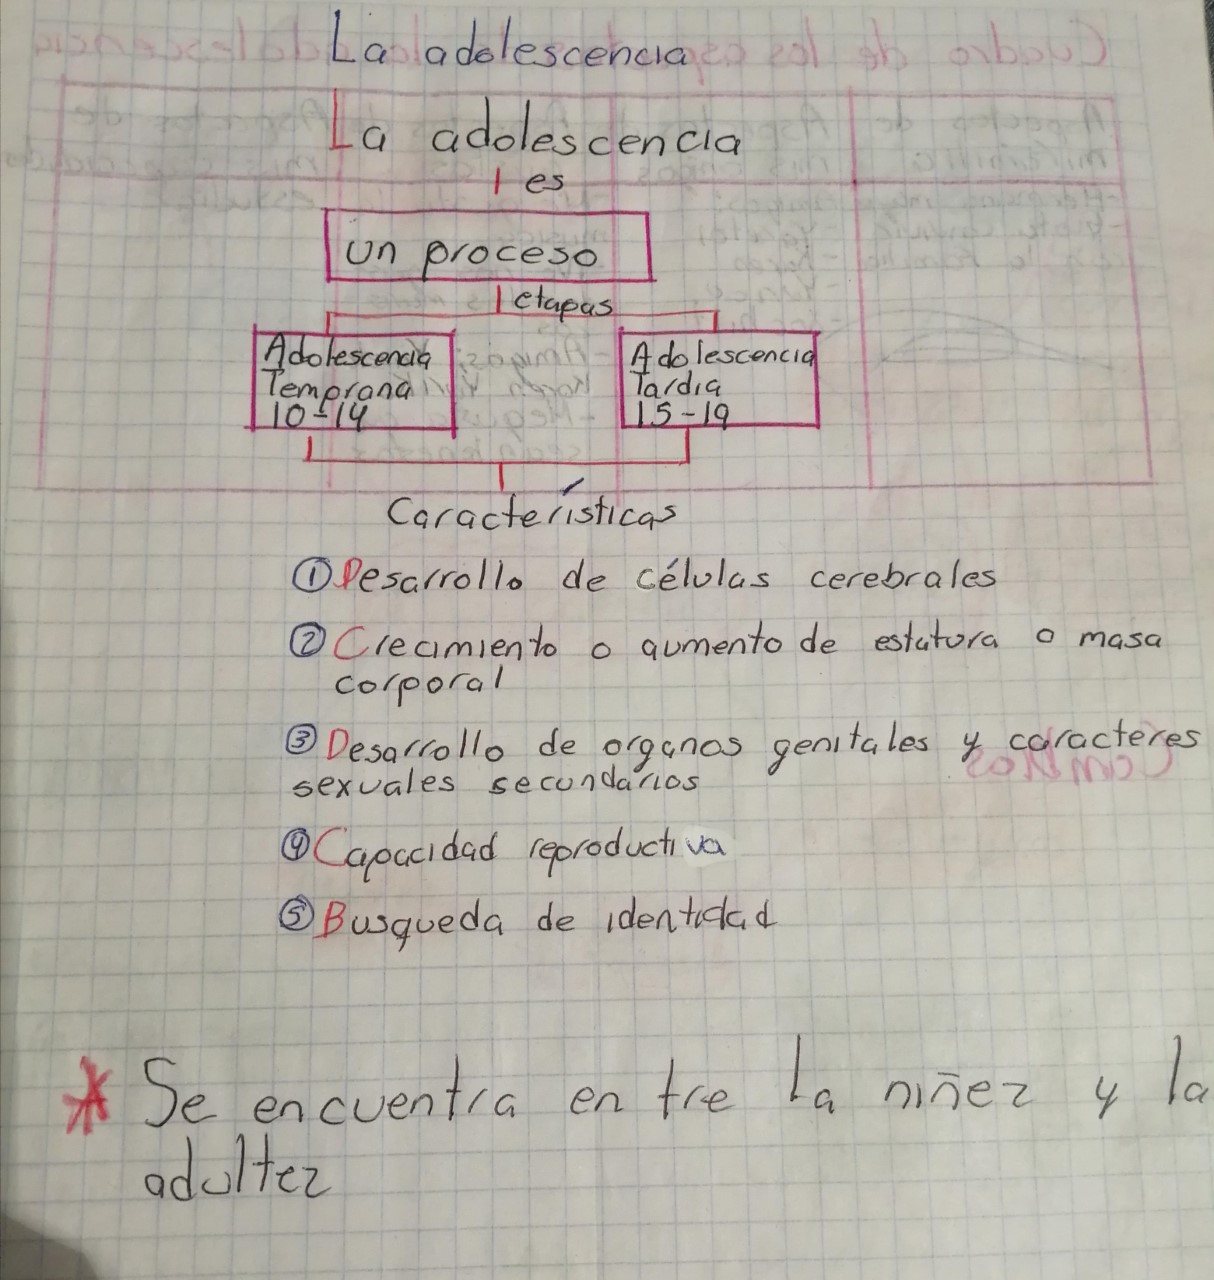 La adolescencia
La adolescencia
es
un proceso
etapas
Adolescencia
Temprana
10-14
Adolescencia
Tardia
15-19
Características
① Desarrollo de células cerebrales
② Crecimiento o aumento de estatura o masa
corporal
③ Desarrollo de organos genitales y carácteres
sexuales secundarios
④ Capacidad reproductiva
⑤ Busqueda de identidad
* Se encuentra entre la niñez y la
adultez